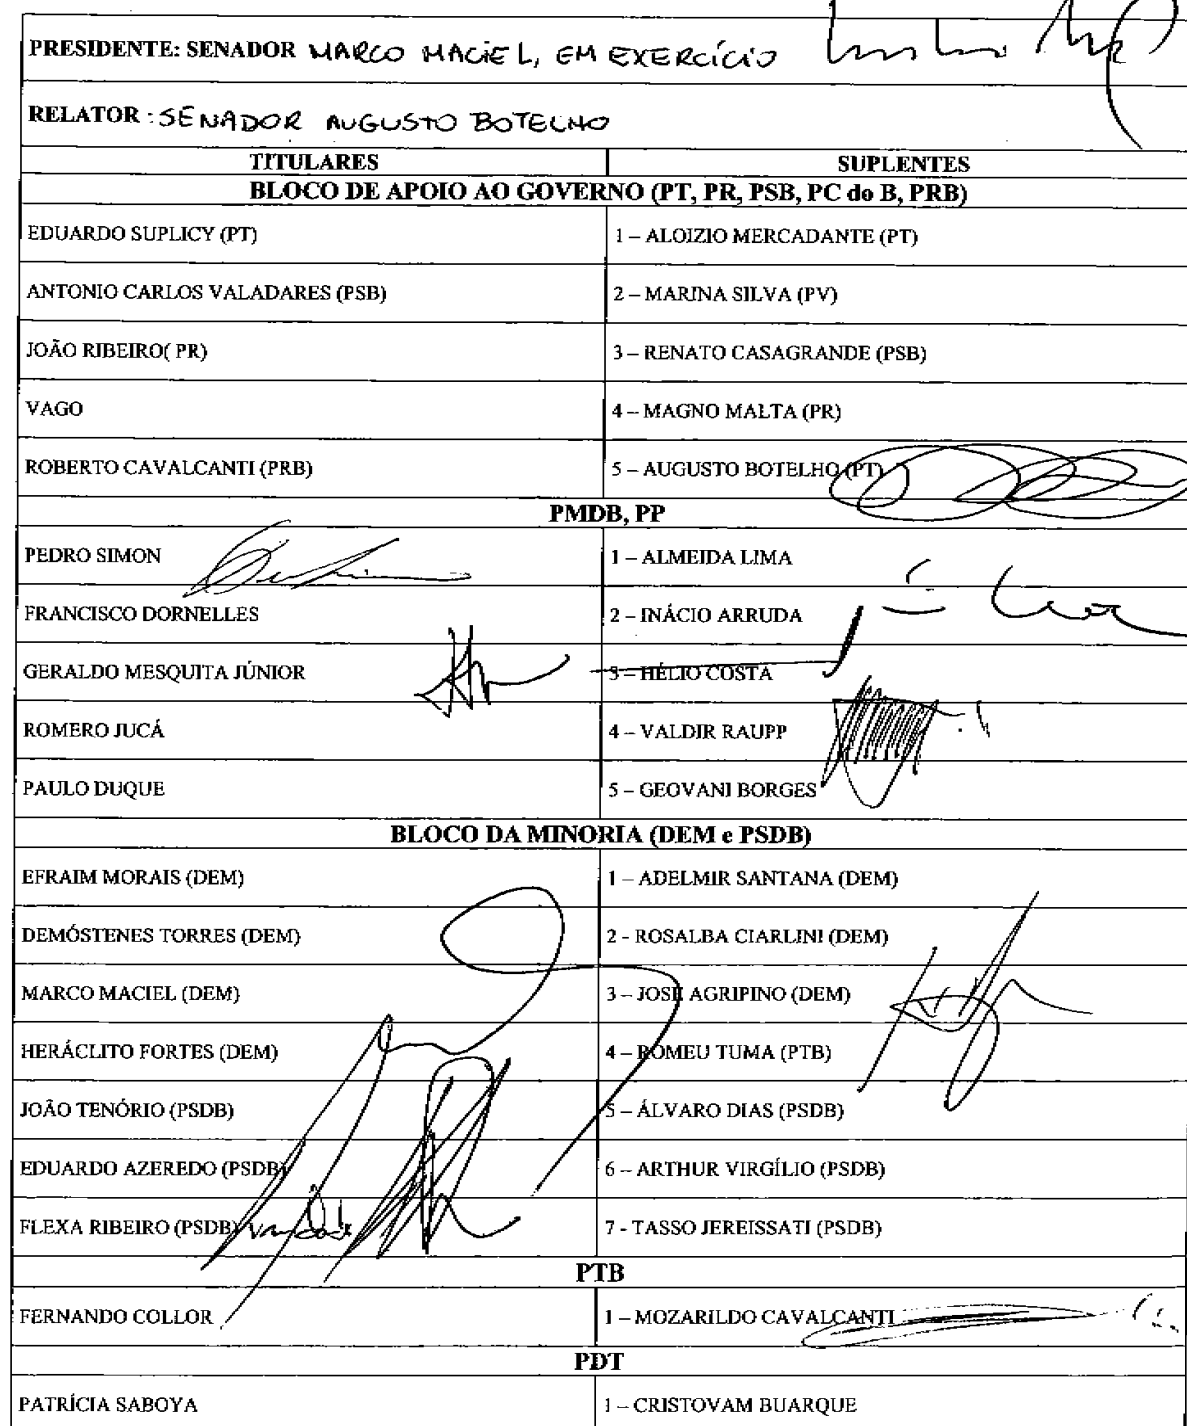 PRESIDENTE: SENADOR MARCO MACIEL, EM EXERCÍCIO
RELATOR: SENADOR AUGUSTO BOTELHO
TITULARES SUPLENTES
BLOCO DE APOIO AO GOVERNO (PT, PR, PSB, PC do B, PRB)
EDUARDO SUPLICY (PT) 1 – ALOIZIO MERCADANTE (PT)
ANTONIO CARLOS VALADARES (PSB) 2 – MARINA SILVA (PV)
JOÃO RIBEIRO( PR) 3 – RENATO CASAGRANDE (PSB)
VAGO 4 – MAGNO MALTA (PR)
ROBERTO CAVALCANTI (PRB) 5 – AUGUSTO BOTELHO (PT)
PMDB, PP
PEDRO SIMON 1 – ALMEIDA LIMA
FRANCISCO DORNELLES 2 – INÁCIO ARRUDA
GERALDO MESQUITA JÚNIOR 3 – HÉLIO COSTA
ROMERO JUCÁ 4 – VALDIR RAUPP
PAULO DUQUE 5 – GEOVANI BORGES
BLOCO DA MINORIA (DEM e PSDB)
EFRAIM MORAIS (DEM) 1 – ADELMIR SANTANA (DEM)
DEMÓSTENES TORRES (DEM) 2 - ROSALBA CIARLINI (DEM)
MARCO MACIEL (DEM) 3 – JOSÉ AGRIPINO (DEM)
HERÁCLITO FORTES (DEM) 4 – ROMEU TUMA (PTB)
JOÃO TENÓRIO (PSDB) 5 – ÁLVARO DIAS (PSDB)
EDUARDO AZEREDO (PSDB) 6 – ARTHUR VIRGÍLIO (PSDB)
FLEXA RIBEIRO (PSDB) 7 - TASSO JEREISSATI (PSDB)
PTB
FERNANDO COLLOR 1 – MOZARILDO CAVALCANTI
PDT
PATRÍCIA SABOYA 1 – CRISTOVAM BUARQUE